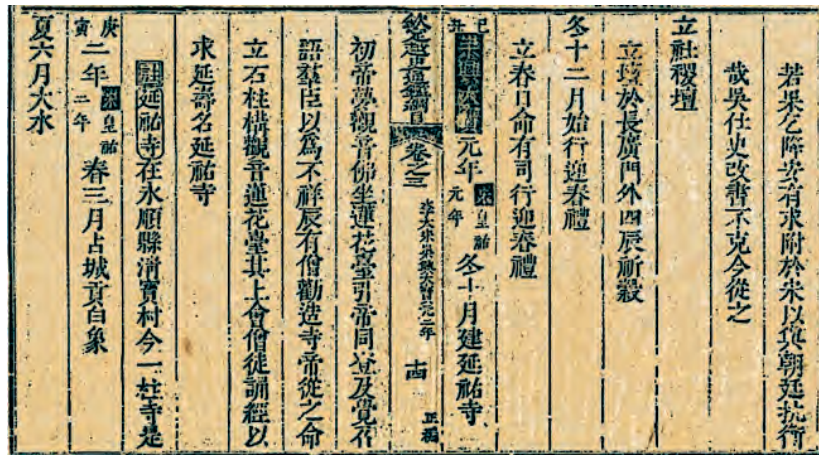 若果乞降安有求附於宋以與朝廷抗衡
哉吳仕史改書不克今從之
立社稷壇
立壇於長廣門外四辰祈穀
冬十二月始行迎春禮
立春日命有司行迎春禮
己丑崇興大寶元年宋皇祐元年冬十月建延祐寺
欽定越史通鑑綱目 卷之三 李太宗崇興大寶元二年 十四 正編
初帝夢觀音佛坐蓮花臺引帝同登及覺召
語羣臣以為不祥辰有僧勸造寺帝從之命
立石柱構觀音蓮花臺其上會僧徒誦經以
求延壽名延祐寺
註延祐寺在永順縣清寶村今一柱寺是
庚寅二年宋皇祐二年春三月占城貢白象
夏六月大水